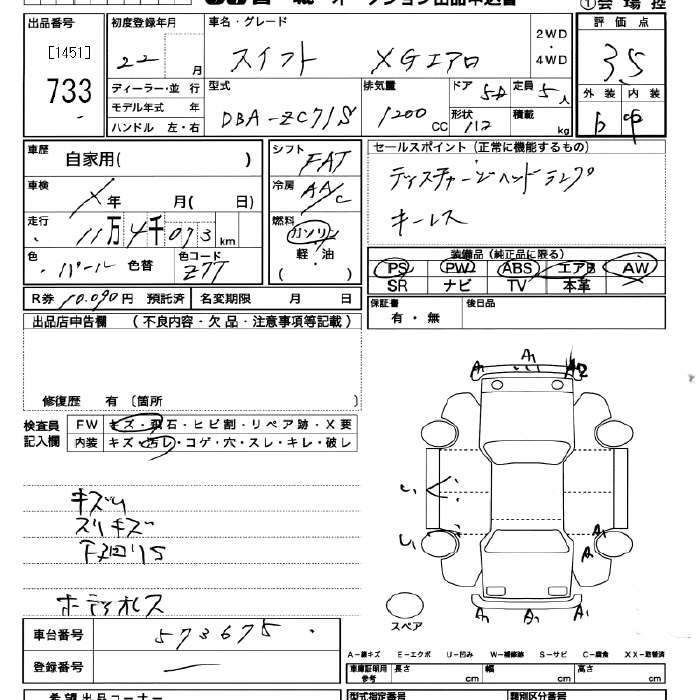 オークション出品申込書
①会場控
出品番号 初度登録年月 車名・グレード 2WD 評価点
[1451] 22 月 スイフト XGエアロ ・ 3.5
733 4WD
ディーラー・並行 型式 排気量 ドア 定員 外装 内装
モデル年式 年 DBA-ZC71S 1200CC 5D 5人
ハンドル 左・右 形状 積載 kg
車歴 シフト セールスポイント(正常に機能するもの)
自家用( ) FAT ディスチャージヘッドランプ
車検 冷房
X年 月( 日) AA/C キーレス
走行 燃料
11万4千073km ガソリン
色 色替 色コード 軽・油 装備品(純正品に限る)
パール Z7T ( ) PS PW ABS エアB AW
SR ナビ TV 本革
R券 10,090円 預託済 名変期限 月 日 保証書 後日品
有・無
出品店申告欄 (不良内容・欠品・注意事項等記載)
修復歴 有〔箇所 〕
検査員 FW キズ・飛石・ヒビ割・リペア跡・X要
記入欄 内装 キズ・汚レ・コゲ・穴・スレ・キレ・破レ
A₁ A₁ A2
キズU
スリキズ
下廻りS
U₁
U₁ A₁
A
ボディオレス
A₁ A₁ A₁
スペア
車台番号 573675
登録番号 —
A-線キズ E-エクボ U-凹み W-補修跡 S-サビ C-腐食 XX-取替済
車庫証明用参考 長さ cm 幅 cm 高さ cm
型式指定番号 類別区分番号
希望出品コーナー